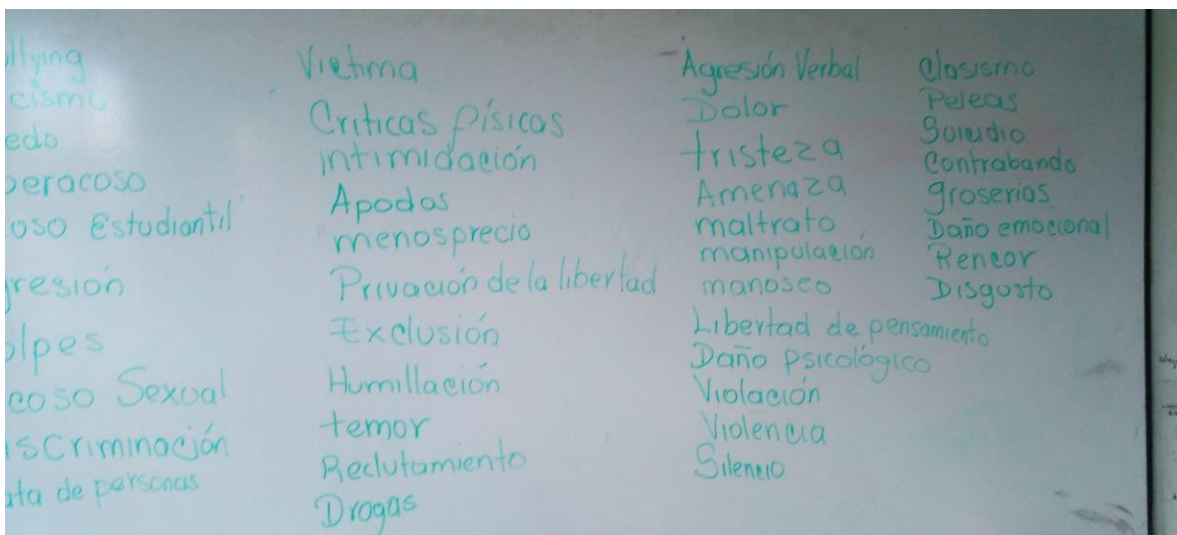 llying
cismo
edo
beracoso
oso Estudiantil
resión
olpes
coso Sexual
iscriminación
ata de personas
Victima
Criticas físicas
intimidación
Apodos
menosprecio
Privación de la libertad
Exclusión
Humillación
temor
Reclutamiento
Drogas
Agresión Verbal
Dolor
tristeza
Amenaza
maltrato
manipulación
manoseo
Libertad de pensamiento
Daño Psicológico
Violación
Violencia
Silencio
Clasismo
Peleas
Suicidio
Contrabando
groserias
Daño emocional
Rencor
Disgusto